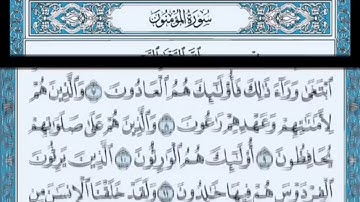 سُورَةُ المُؤْمِنُونَ
ٱبْتَغَىٰ وَرَآءَ ذَٰلِكَ فَأُو۟لَٰٓئِكَ هُمُ ٱلْعَادُونَ ٧ وَٱلَّذِينَ هُمْ
لِأَمَٰنَٰتِهِمْ وَعَهْدِهِمْ رَٰعُونَ ٨ وَٱلَّذِينَ هُمْ عَلَىٰ صَلَوَٰتِهِمْ
يُحَافِظُونَ ٩ أُو۟لَٰٓئِكَ هُمُ ٱلْوَٰرِثُونَ ١٠ ٱلَّذِينَ يَرِثُونَ
ٱلْفِرْدَوْسَ هُمْ فِيهَا خَٰلِدُونَ ١١ وَلَقَدْ خَلَقْنَا ٱلْإِنسَٰنَ مِن